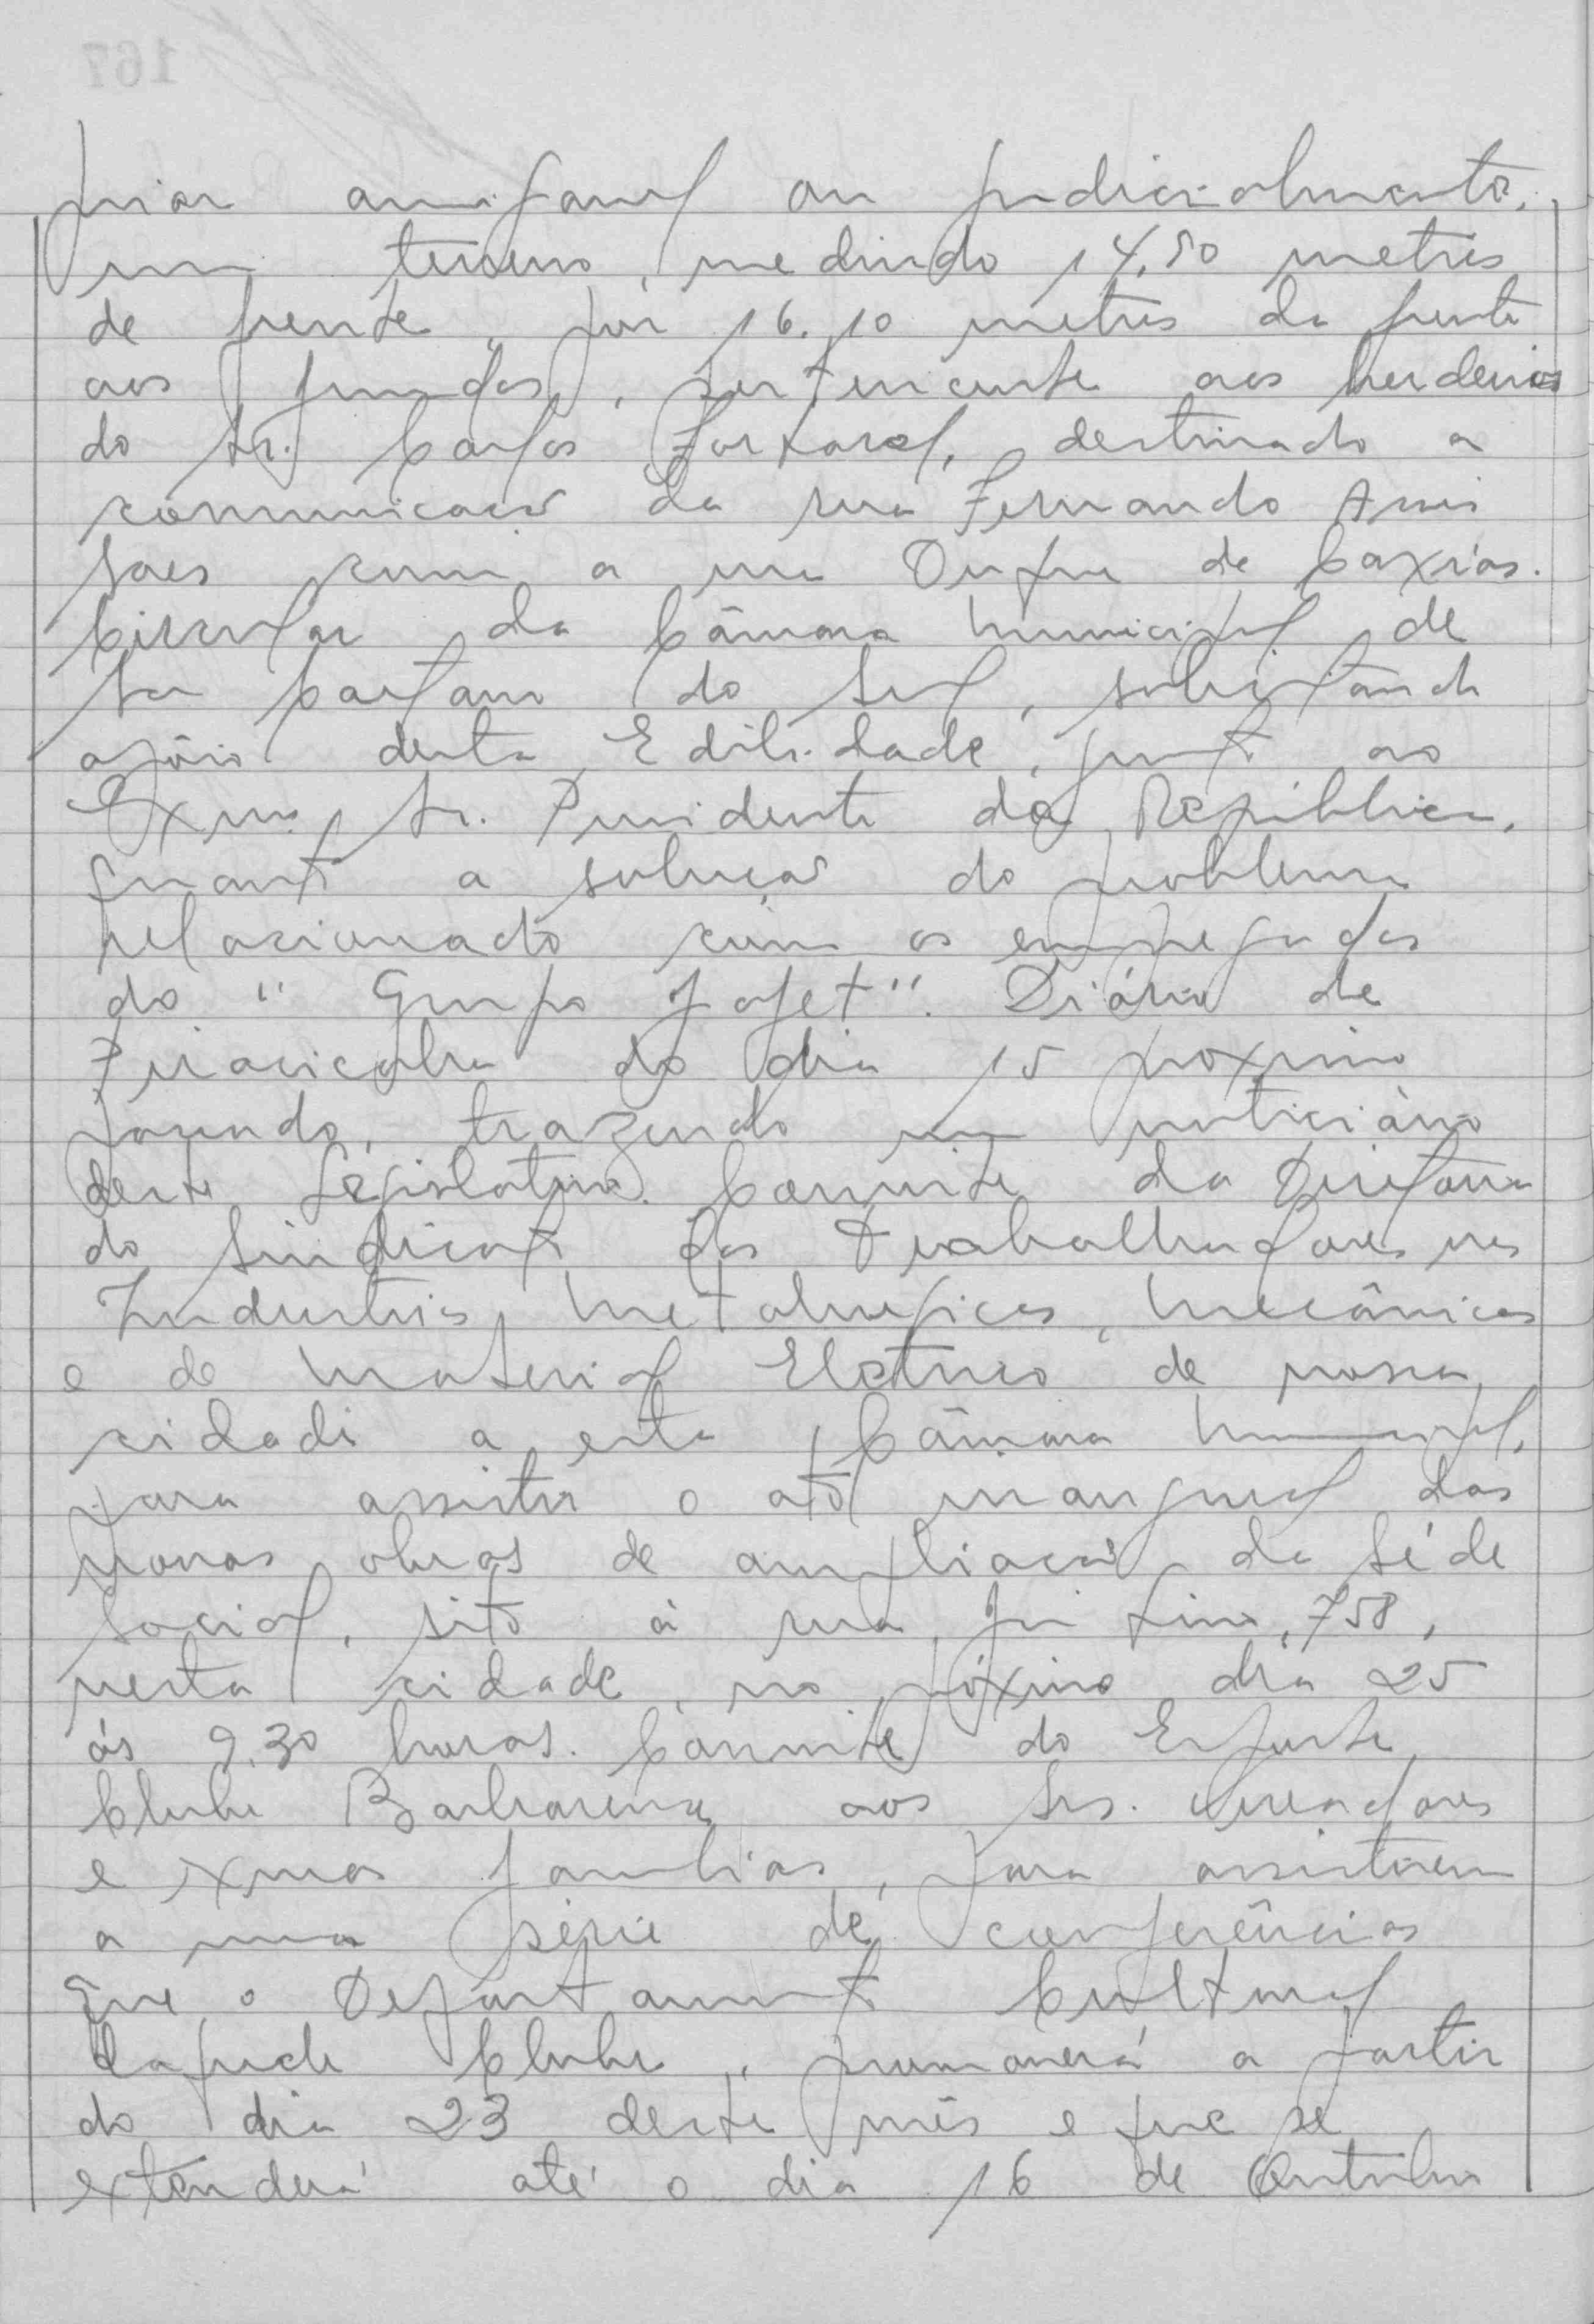 priar amigavel ou judicialmente,
um terreno, medindo 14,50 metros
de frente, por 16.10 metros da frente
aos fundos, pertencente aos herdeiros
do Sr. Carlos destinado a
comunicação da rua Fernando Assis
Saes com a rua Duque de Caxias.
Circular da Câmara Municipal de
São Caetano do Sul, solicitando
apôio desta Edilidade, junto ao
Exmo. Sr. Presidente da República,
quanto a solução do problema
relacionado com os empregados
do "Grupo Jafet". Diário de
Piracicaba do dia 15 proximo
passado, trazendo um noticiário
deste Legislativo. Convite da Diretoria
do Sindicato dos Trabalhadores nas
Industrias Metalurgicas, Mecânicas
e de Material Eletrico de nossa
cidade a esta Câmara Municipal,
para assistir o ato inaugural das
novas obras de ampliação da Séde
Social, sito à rua 758,
nesta cidade, no próximo dia 25
ás 9,30 horas. Convite do Esporte
Clube Barbarense aos Srs. Vereadores
e exmas familias, para assistirem
a uma série de conferências
que o Departamento Cultural
daquele Clube, promoverá a partir
do dia 23 deste mês e que se
extenderá até o dia 16 de Outubro